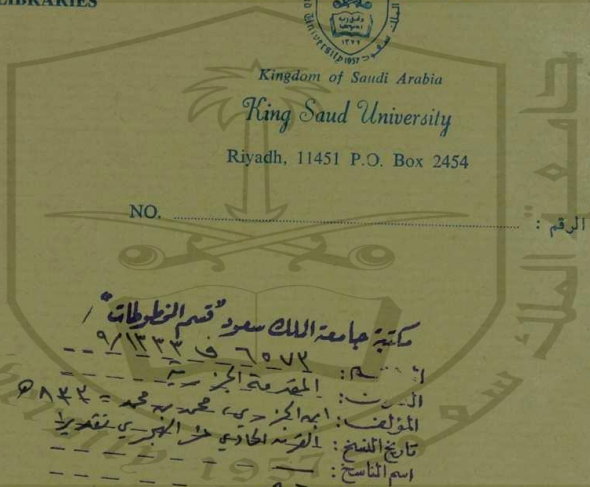 LIBRARIES
Kingdom of Saudi Arabia
King Saud University
Riyadh, 11451 P.O. Box 2454
NO. الرقم :
مكتبة جامعة الملك سعود "قسم المخطوطات"
٦٥٧٣ ف ١٣٣٣/٩
المقدمة الجزرية
المؤلف: ابن الجزري، محمد بن محمد - ٨٣٣ هـ
تاريخ النسخ: القرن الحادي عشر الهجري تقديرا
اسم الناسخ: